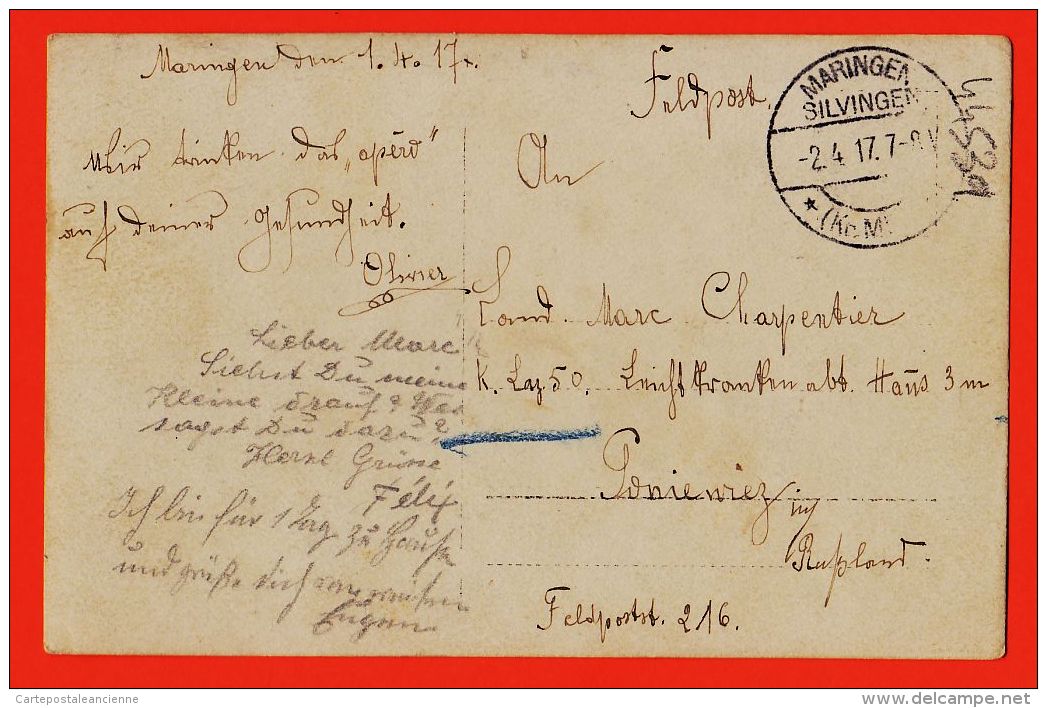 Maringen den 1.4.17.
Wir trinken das „apéro"
auf deiner Gesundheit.
Olivier
Lieber Marc
Siehst Du meine
Kleine drauf? Was
sagst Du dazu?
Herzl Grüsse
Félix
Ich bin für 1 Tag zu Hause
und grüße dich von
Eugen
Feldpost.
MARINGEN
SILVINGEN
-2.4.17. 7-8V
* (Kr. M)
An
Land. Marc Charpentier
K. Laz 50. Leichtkranken abt. Haus 3 m
Poniewiez in
Rußland.
Feldpostst. 216.
Cartepostaleancienne
delcampe.net